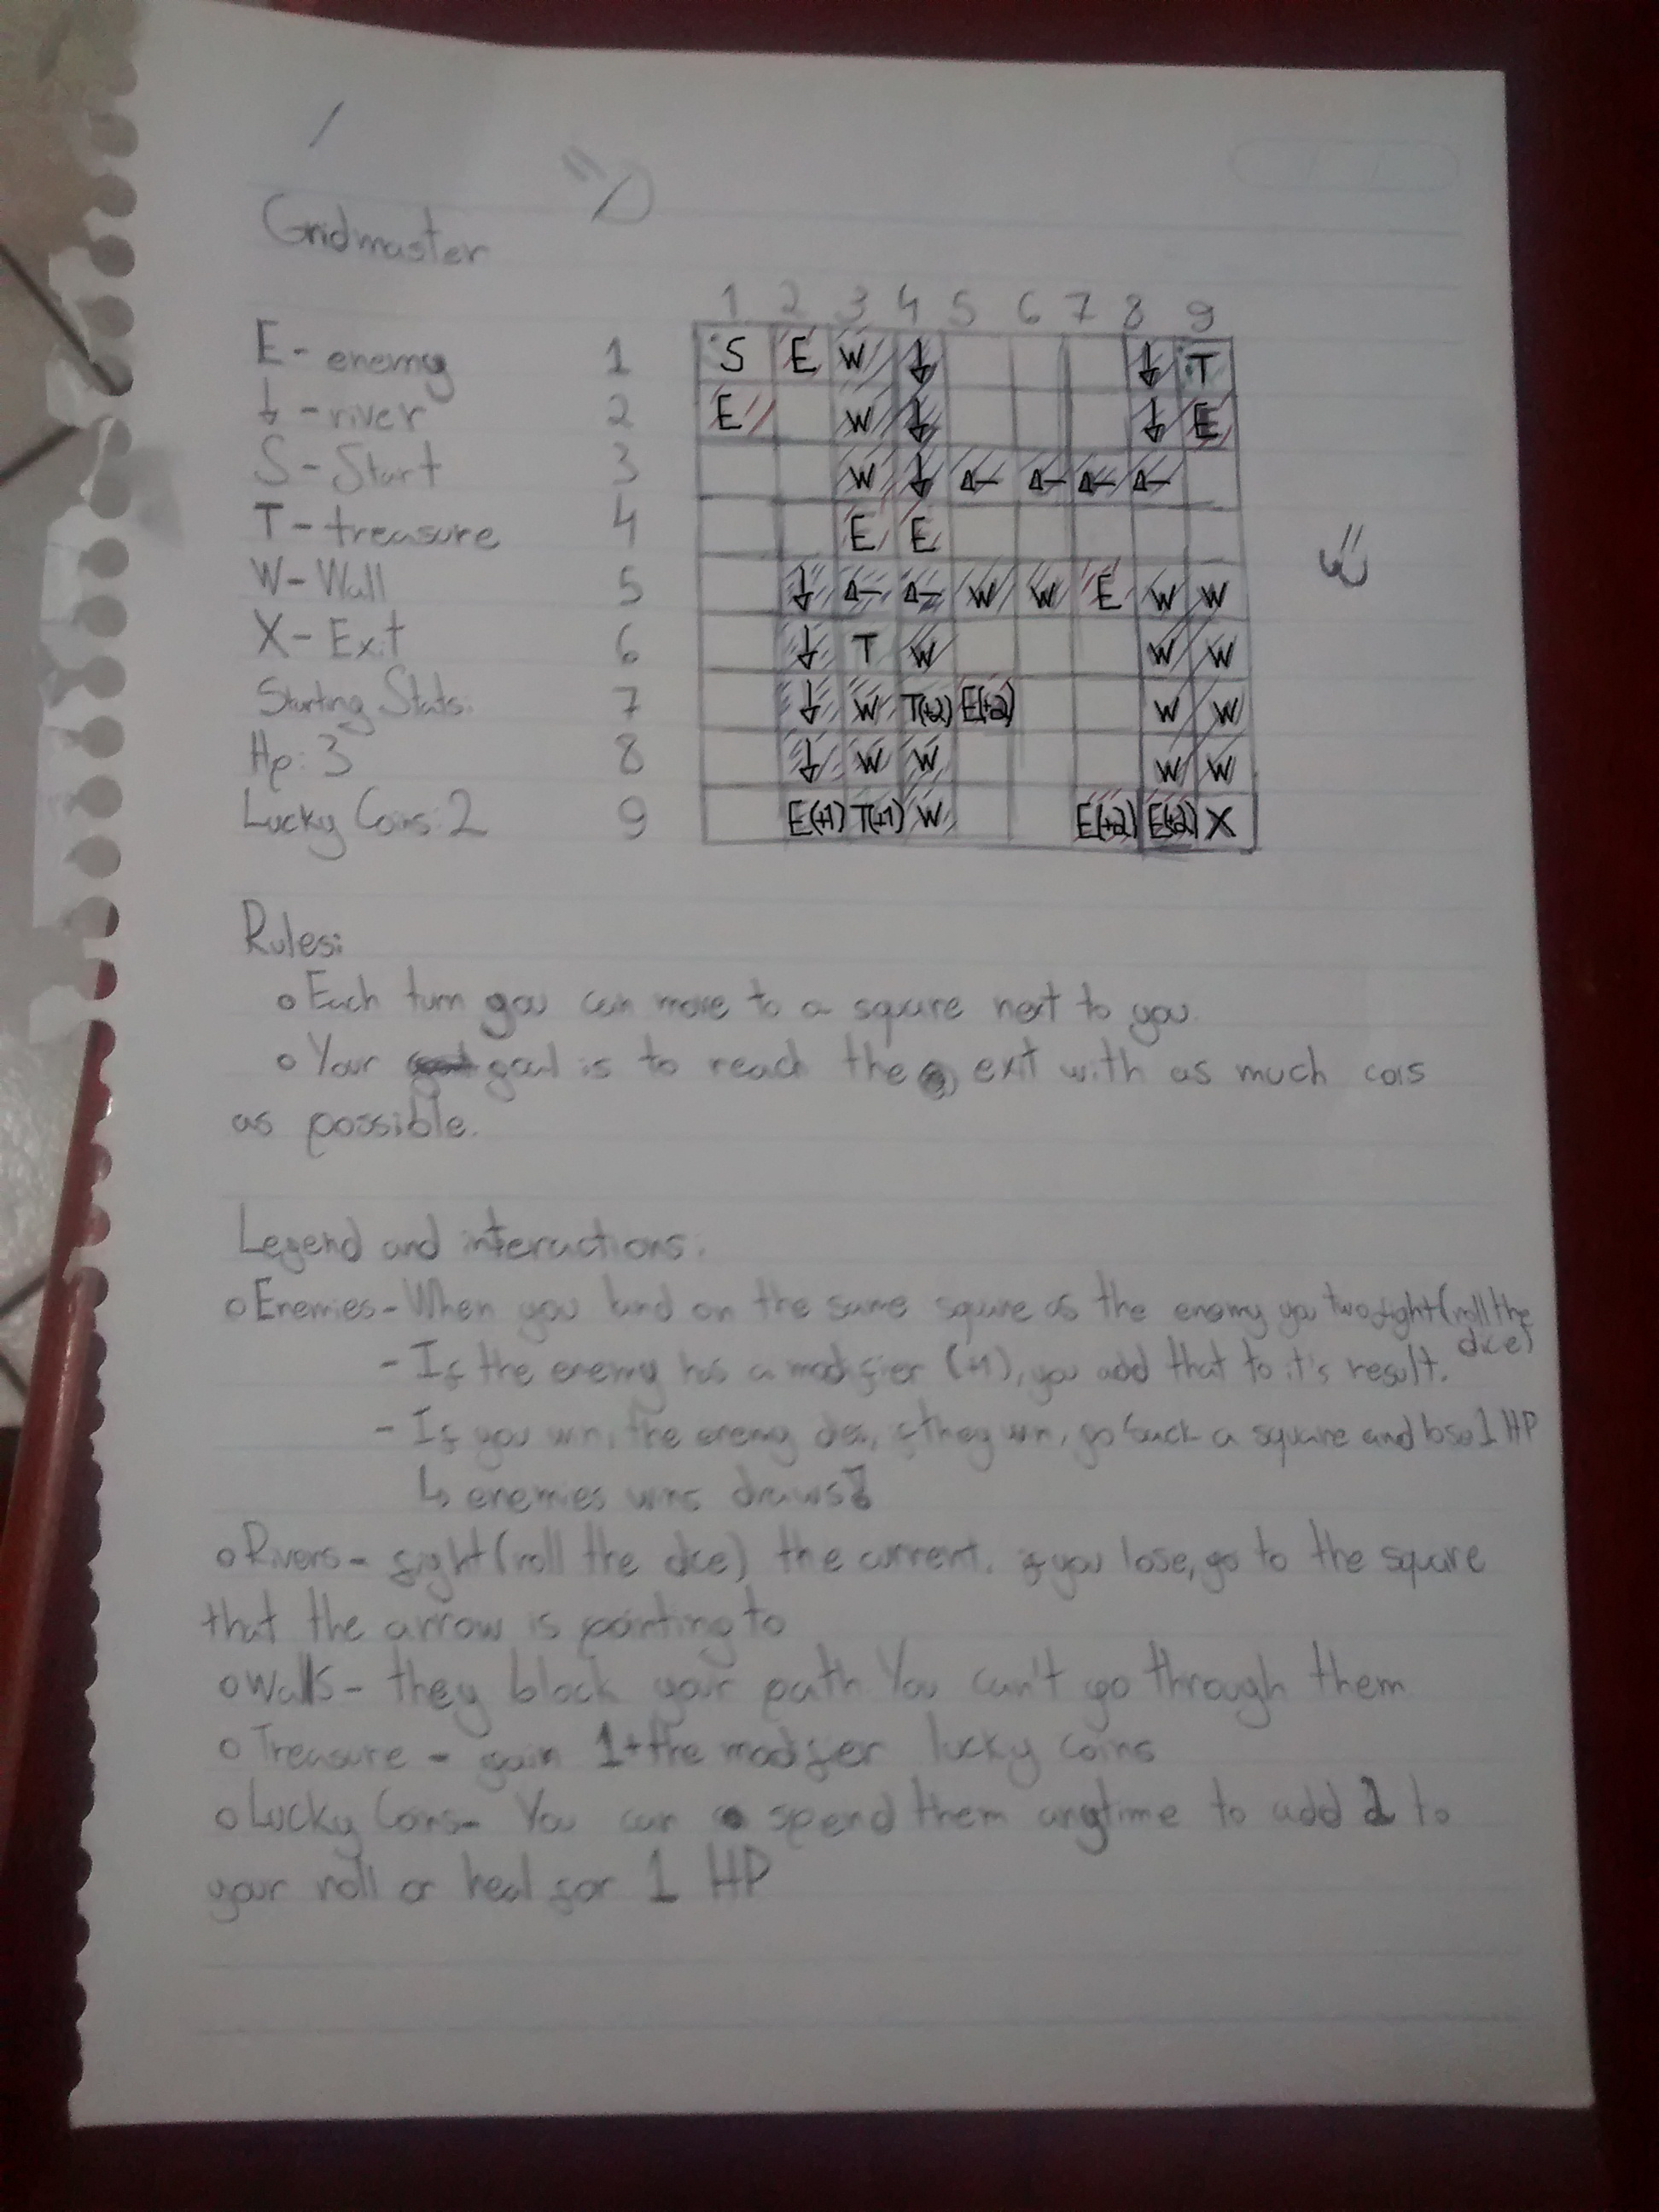 Gridmaster
1 2 3 4 5 6 7 8 9
E - enemy 1 S E W ↓ ↓ T
↓ - river 2 E W ↓ ↓ E
S - Start 3 W ↓ ← ← ← ←
T - treasure 4 E E
W - Wall 5 ↓ ← ← W W E W W
X - Exit 6 ↓ T W W W
Starting Stats: 7 ↓ W T(+2) E(+2) W W
Hp: 3 8 ↓ W W W W
Lucky Coins: 2 9 E(+1) T(+1) W E(+2) E(+2) X
Rules:
o Each turn you can move to a square next to you.
o Your goal is to reach the exit with as much cois
as possible.
Legend and interactions:
o Enemies - When you land on the same square as the enemy you two fight (roll the
dice)
- If the enemy has a modifier (+1), you add that to it's result.
- If you win, the enemy dies, if they win, go back a square and lose 1 HP
↳ enemies wins draws
o Rivers - fight (roll the dice) the current. if you lose, go to the square
that the arrow is pointing to
o Walls - they block your path You can't go through them
o Treasure - gain 1 + the modifier lucky coins
o Lucky Coins - You can spend them anytime to add 2 to
your roll or heal for 1 HP